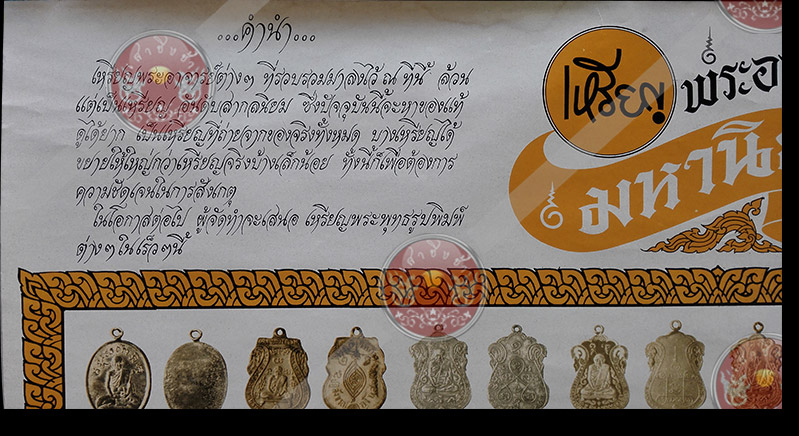 ...คำนำ...
เหรียญพระอาจารย์ต่างๆ ที่รวบรวมมาลงไว้ ณ ที่นี้ ล้วน
แต่เป็นเหรียญ อันดับสากลนิยม ซึ่งปัจจุบันนี้จะหาของแท้
ดูได้ยาก เป็นเหรียญที่ถ่ายจากของจริงทั้งหมด บางเหรียญได้
ขยายให้ใหญ่กว่าเหรียญจริงบ้างเล็กน้อย ทั้งนี้ก็เพื่อต้องการ
ความชัดเจนในการสังเกตุ
ในโอกาสต่อไป ผู้จัดทำจะเสนอ เหรียญพระพุทธรูปพิมพ์
ต่างๆ ในเร็วๆนี้
เหรียญ พระอา
มหานิ